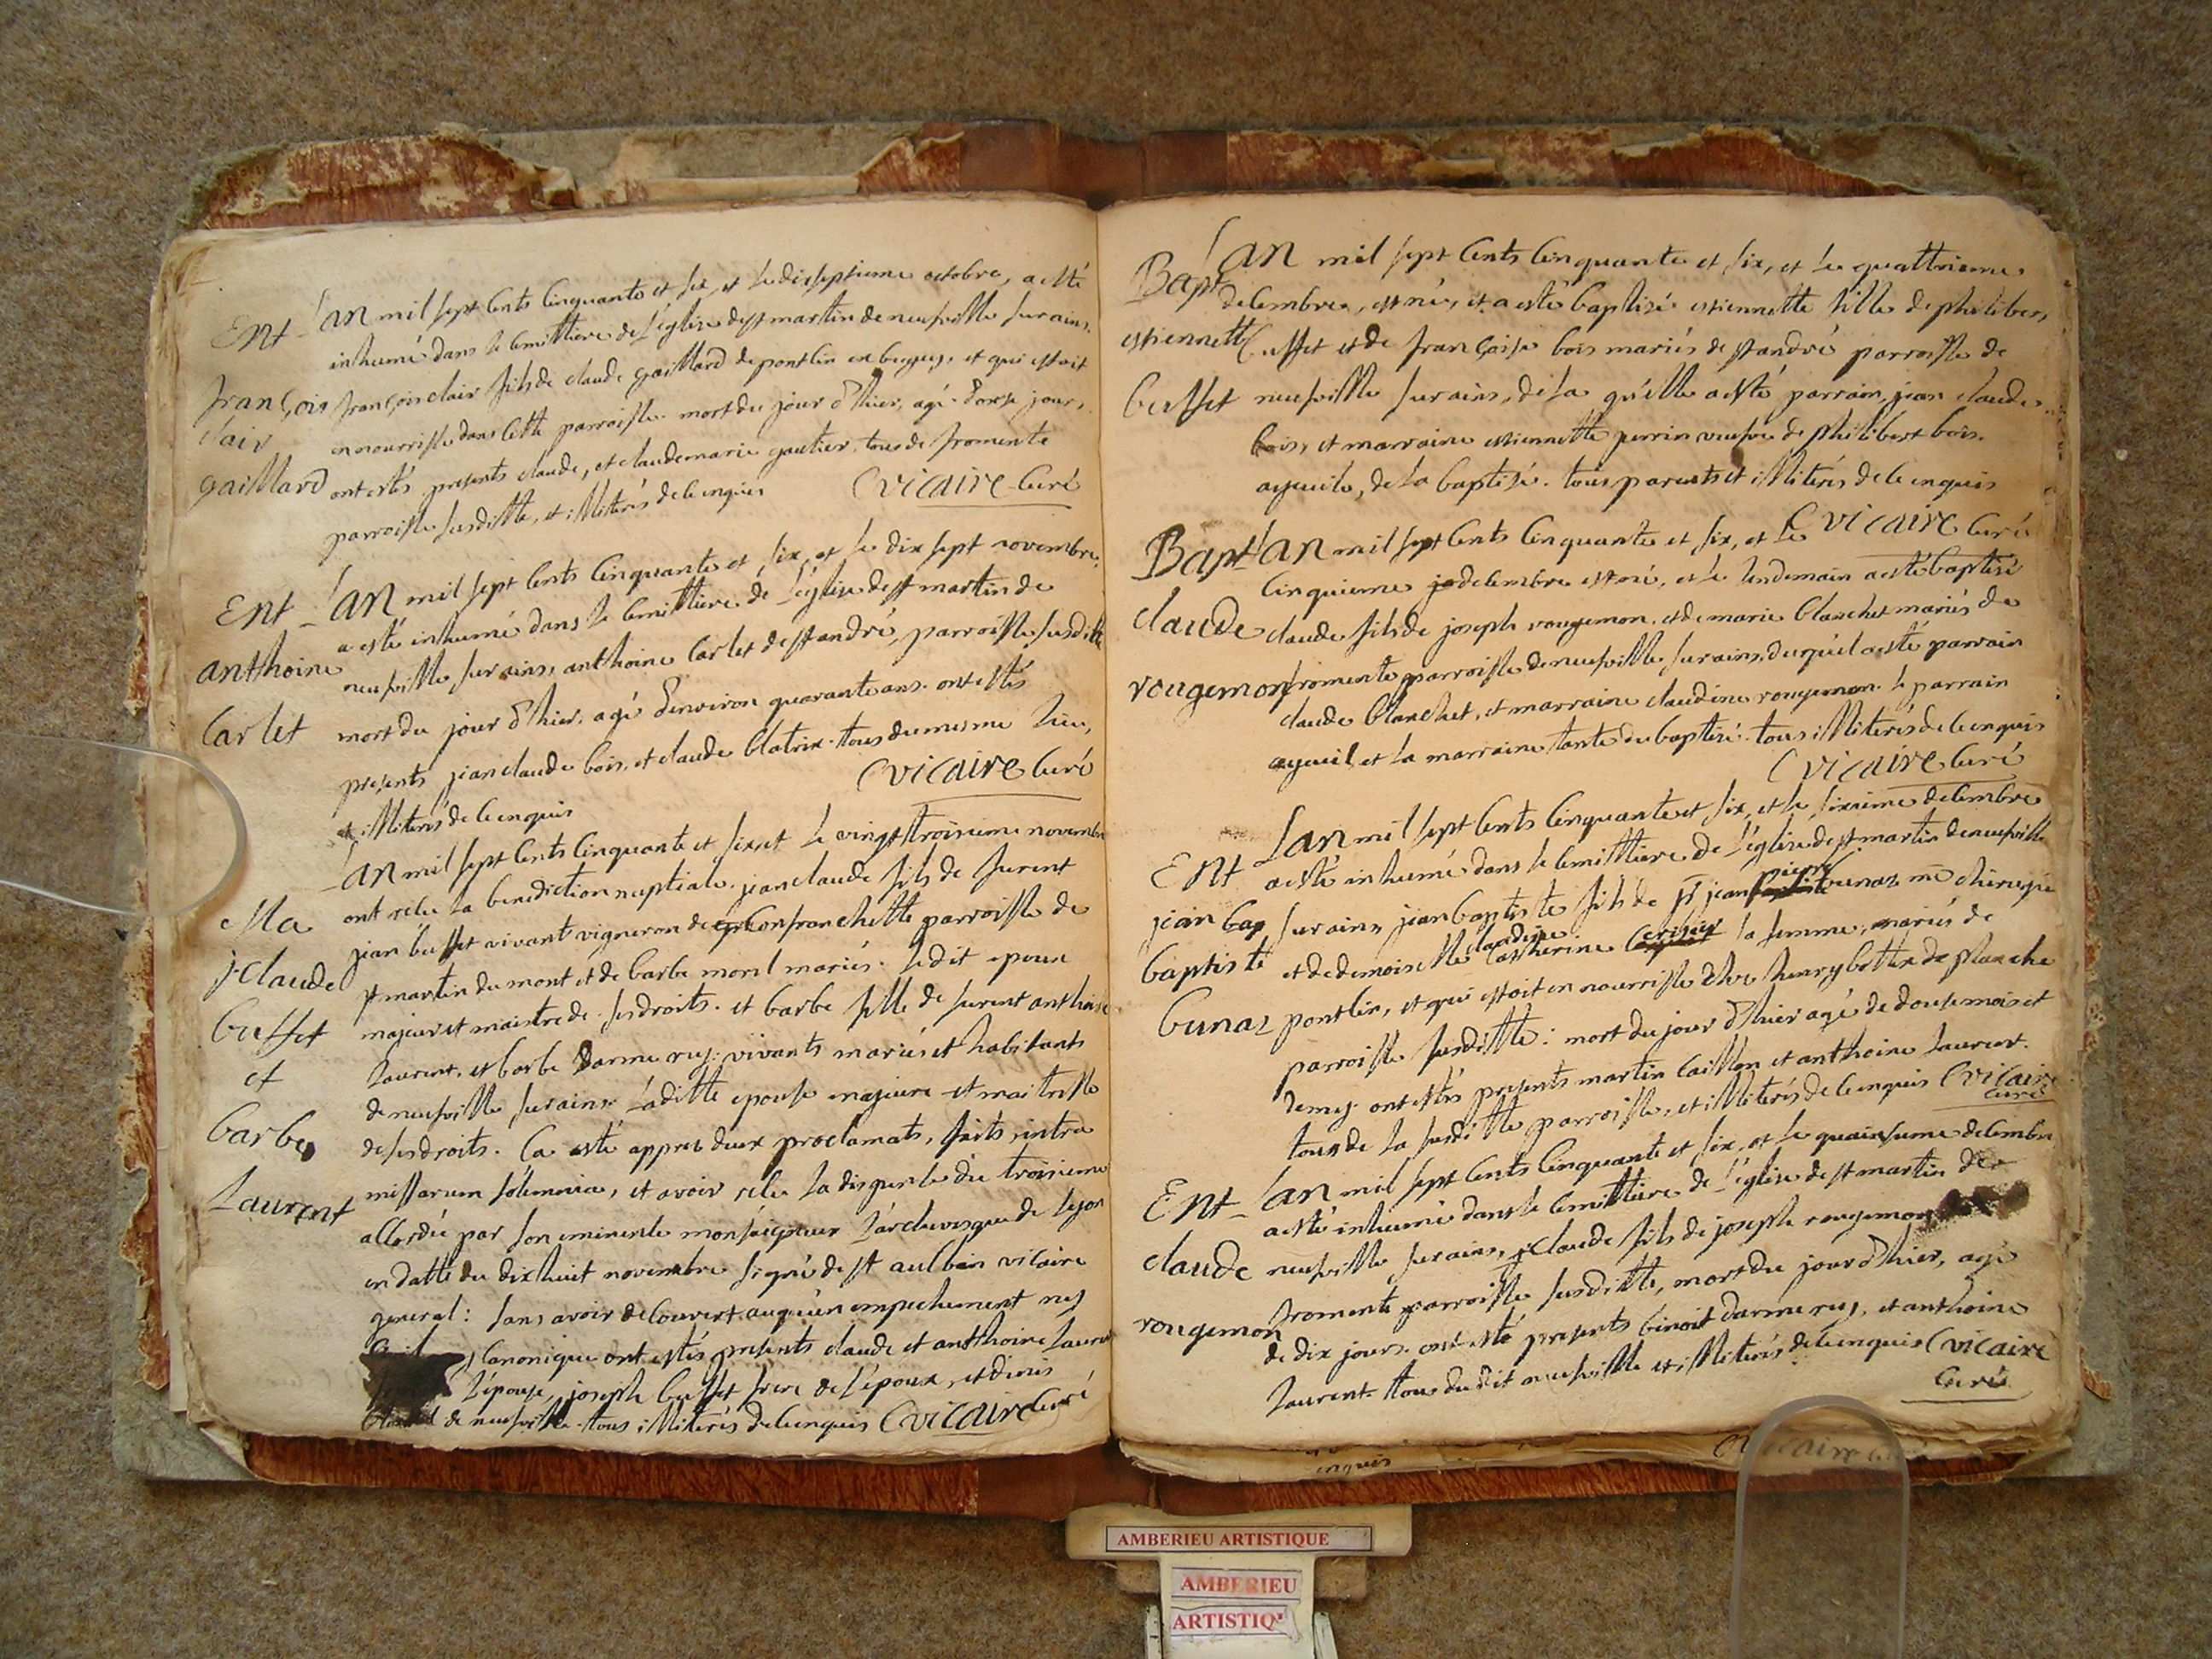 Ent - L'an mil sept cents cinquante et six, et le disseptieme octobre, a esté
inhumé dans le cemittiere de l'eglise de st martin de neufville sur ains,
françois françois clair fils de claude gaillard de pontcin en bugey, et qui estoit
clair en nourrisse dans cette parroisse. mort du jour d'hier, agé d'onse jour,
gaillard ont estés presents claude, et claude marie gautier. tous de fromente
parroisse susditte, et illiterés de ce enquis C vicaire curé
Ent - L'an mil sept cents cinquante et six, et le dix sept novembre,
a esté inhumé dans le cemittiere de l'eglise de st martin de
anthoine neufville sur ains, anthoine Carlet de st andré, parroisse susditte
Carlet mort du jour d'hier. agé d'environ quarante ans. ont estés
presents jean claude bois, et claude blatrix. tous du mesme lieu,
et illiterés de ce enquis C vicaire Curé
L'an mil sept cents cinquante et six et le vingt troisieme novembre
Ma ont reçu la benediction nuptiale. jean claude fils de furent
jean buffet vivant vigneron de confranchette parroisse de
j. Claude st martin du mont et de barbe morel mariés. ledit epoux
buffet majeur et maistre de ses droits. et barbe fille de furent anthoine
et laurent, et barbe Darmeruy: vivants mariés et habitants
de neufville sur ains. Laditte epouse majeure et maitresse
barbe de ses droits. Ca esté appres deux proclamats, faits, intra
Laurent missarum solemnia, et avoir reçu la dispense du troisieme
accordée par son eminence monseigneur l'archevesque de lyon
en datte du dixhuit novembre signé de st aulbin vicaire
general: sans avoir decouvert auqu'un empechement ny
Civil ny Canonique ont estés presents claude et anthoine laurent
l'epouse, joseph buffet frere de l'epoux, et dinis
de neufville. tous illiterés de ce enquis C vicaire curé
Bapt L'an mil sept cents cinquante et six, et le quattrieme
decembre, est née, et a esté baptisée estiennette fille de philibert
estiennette buffet et de françoise bois mariés de st andré parroisse de
buffet neufville sur ains, de la qu'elle a esté parrain, jean claude
bois, et marraine estiennette perrin veufve de philibert bois.
ayeuile, de la baptisée. tous parents et illiterés de ce enquis
C vicaire curé
Bapt L'an mil sept cents cinquante et six, et le
cinquieme decembre est né, et le lendemain a esté baptisé
claude claude fils de joseph rougemon, et de marie blanchet mariés de
rougemon fromente parroisse de neufville sur ains, duquel a esté parrain
claude blanchet, et marraine claudine rougemon. le parrain
ayeuil et la marraine tante du baptisé. tous illiterés de ce enquis
C vicaire Curé
Ent L'an mil sept cents cinquante et six, et le sixieme decembre
a esté inhumé dans le cemittiere de l'eglise de st martin de neufville
pierre
jean bap sur ains, jean baptiste fils de sr jean bunaz me chirugie
claudine
baptiste et de demoiselle Catherine la femme, mariés de
bunaz pontcin, et qui estoit en nourrisse chés henry bottex de planche
parroisse susditte: mort du jour d'hier agé de douse mois et
demy. ont estés presents martin Caillon et anthoine laurent.
tous de la susditte parroisse, et illiterés de ce enquis C vicaire
curé
Ent - L'an mil sept cents cinquante et six, et le quainsieme decembre
a esté inhumé dans le cemittiere de l'eglise de st martin de
claude neufville sur ains, claude fils de joseph rougemon
fromente parroisse susditte, mort du jour d'hier, agé
rougemon de dix jours. ont esté presents binoit darmeruy, et anthoine
laurent. tous dudit neufville et illiterés de ce enquis C vicaire
Curé
enquis
AMBERIEU ARTISTIQUE
AMBERIEU
ARTISTIQ